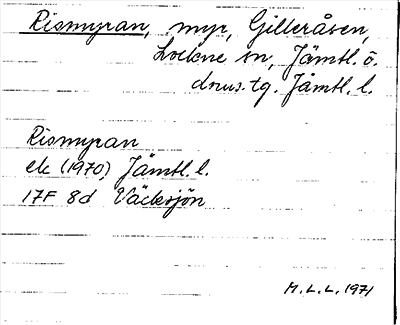 Rismyran, myr, Gilleråsen,
Lockne sn, Jämtl. ö.
doms.tg. Jämtl. l.
Rismyran
ek (1970) Jämtl. l.
17F 8d Väcksjön
M.L.L. 1971